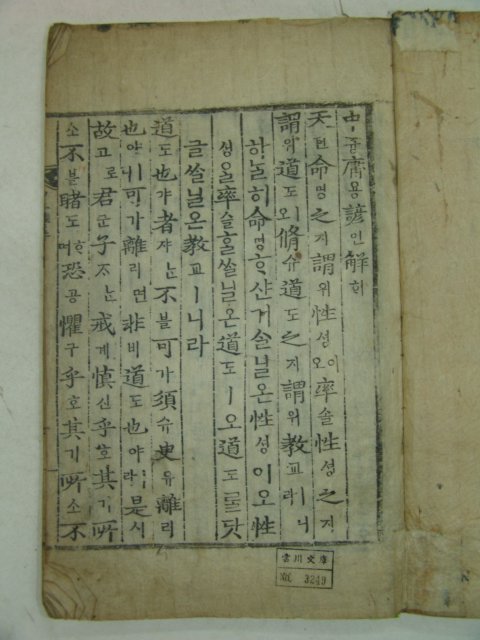 中듕庸용諺언解ᄒᆡ
天텬命명之지謂위性셩이오率솔性셩之지
謂위道도ㅣ오脩슈道도之지謂위敎교ㅣ니라
하ᄂᆞᆯ히命명ᄒᆞ샨거ᄉᆞᆯ닐온性셩이오性
셩을率솔ᄒᆞᆯᄊᆞᆯ닐온道도ㅣ오道도ᄅᆞᆯ닷
글ᄊᆞᆯ닐온敎교ㅣ니라
道도也야者쟈ᄂᆞᆫ不블可가須슈臾유離리
也야ㅣ니可가離리면非비道도也야ㅣ라是시
故고로君군子ᄌᆞᄂᆞᆫ戒계愼신乎호其기所
소不블睹도ᄒᆞ며恐공懼구乎호其기所소不
雲川文庫
3249